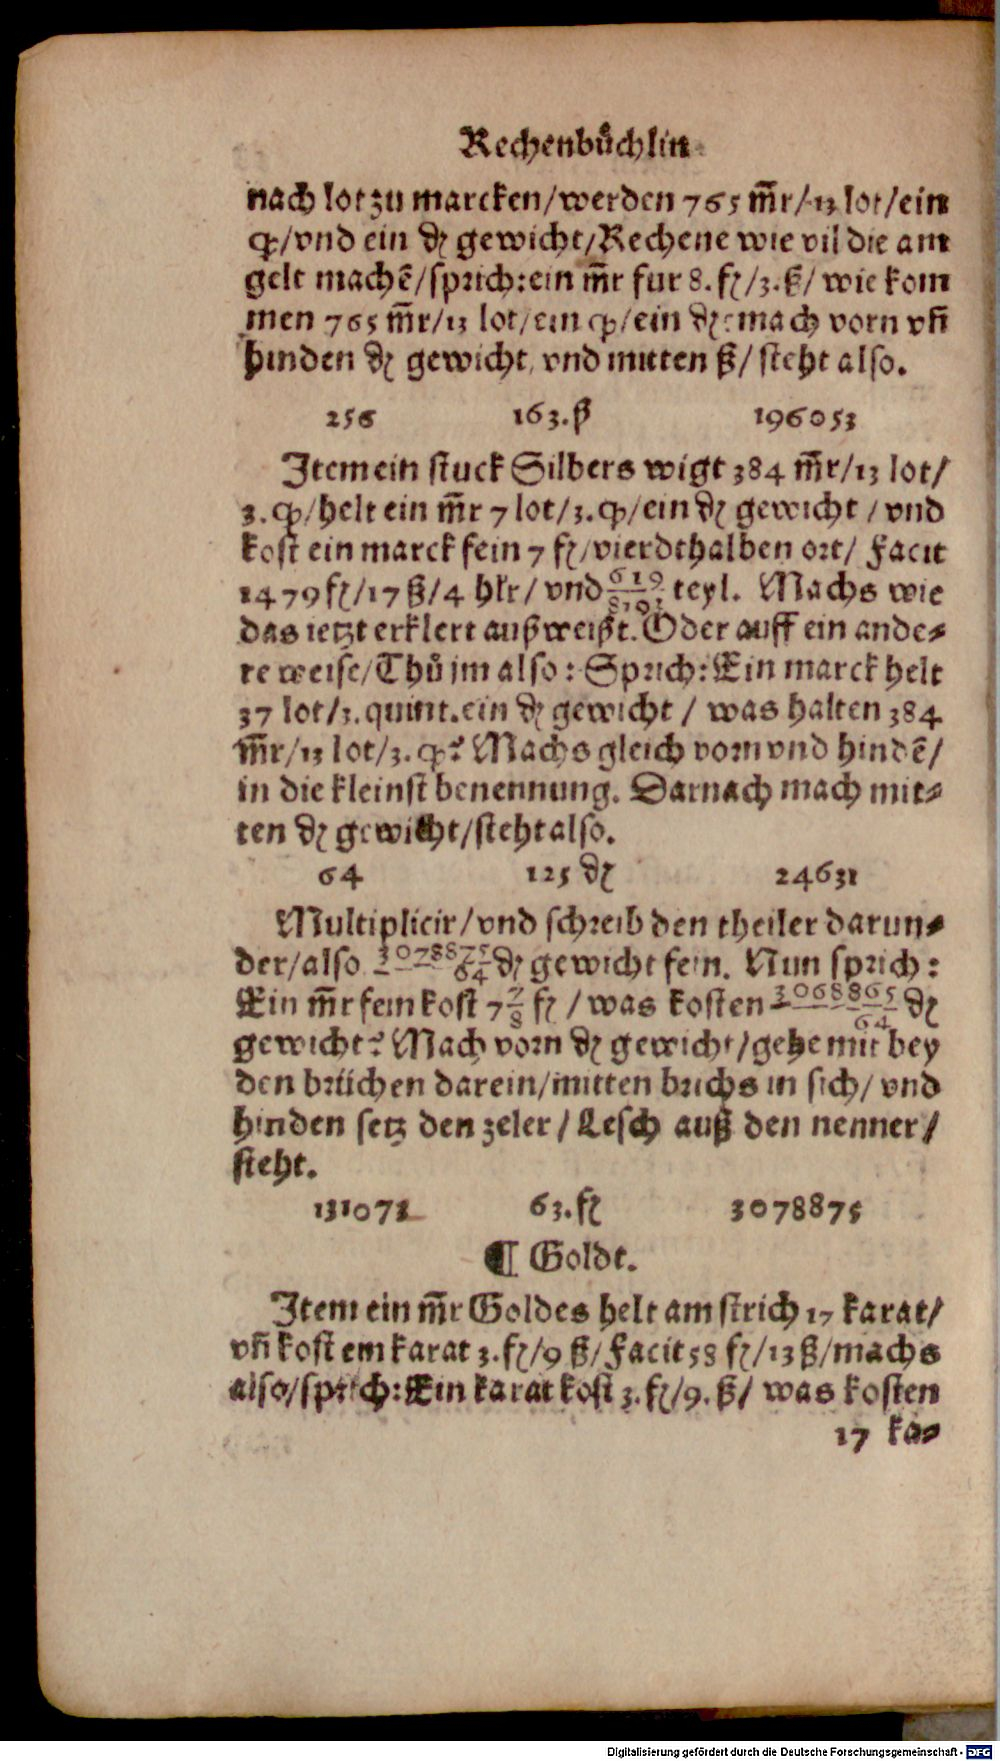 Rechenbuͤchlin
nach lot zu marcken/werden 765 m̃r/13 lot/ein
qͥ/vnd ein ₰ gewicht/Rechene wie vil die am
gelt machẽ/sprich:ein m̃r fur 8. fl/3.ß/ wie kom
men 765 m̃r/13 lot/ein q/ein ₰:mach vorn vñ
hinden ₰ gewicht, vnd mitten ß/ steht also.
256 163.ß 196053
Item ein stuck Silbers wigt 384 m̃r/13 lot/
3.q/helt ein m̃r 7 lot/3.q/ein ₰ gewicht / vnd
kost ein marck fein 7 fl/vierdthalben ort/ Facit
1479 fl/17 ß/4 hlr/ vnd teyl. Machs wie
das ietzt erklert außweißt. Oder auff ein ande⸗
re weise/Thuͦ jm also: Sprich: Ein marck helt
37 lot/3.quint.ein ₰ gewicht / was halten 384
m̃r/13 lot/3.q? Machs gleich vorn vnd hindẽ/
in die kleinst benennung. Darnach mach mit⸗
ten ₰ gewicht/steht also.
64 125 ₰ 24631
Multiplicir/vnd schreib den theiler darun⸗
der/also 3078875/64 ₰ gewicht fein. Nun sprich:
Ein m̃r fein kost 7 7/8 fl / was kosten 3068865/64 ₰
gewicht? Mach vorn ₰ gewicht/gehe mit bey
den bruͤchen darein/mitten brichs in sich/ vnd
hinden setz den zeler / Lesch auß den nenner/
steht.
131072 63.fl 3078875
¶ Goldt.
Item ein m̃r Goldes helt am strich 17 karat/
vñ kost ein karat 3.fl/9 ß/Facit 58 fl/13 ß/machs
also/sprich:Ein karat kost 3.fl/9.ß/ was kosten
17 ka⸗
Digitalisierung gefördert durch die Deutsche Forschungsgemeinschaft - DFG